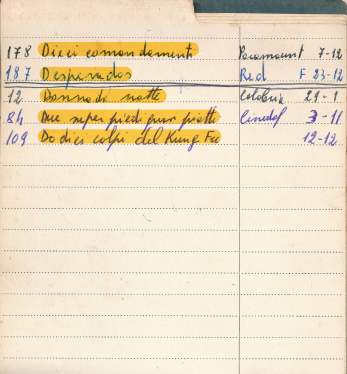 178 Dieci comandamenti Paramount 7-12
187 Desperados Red F 23-12
12 Donna di notte 21-1
84 Due super piedi quasi piatti Cinedef 3-11
109 Dodici colpi del Kung Fu 12-12